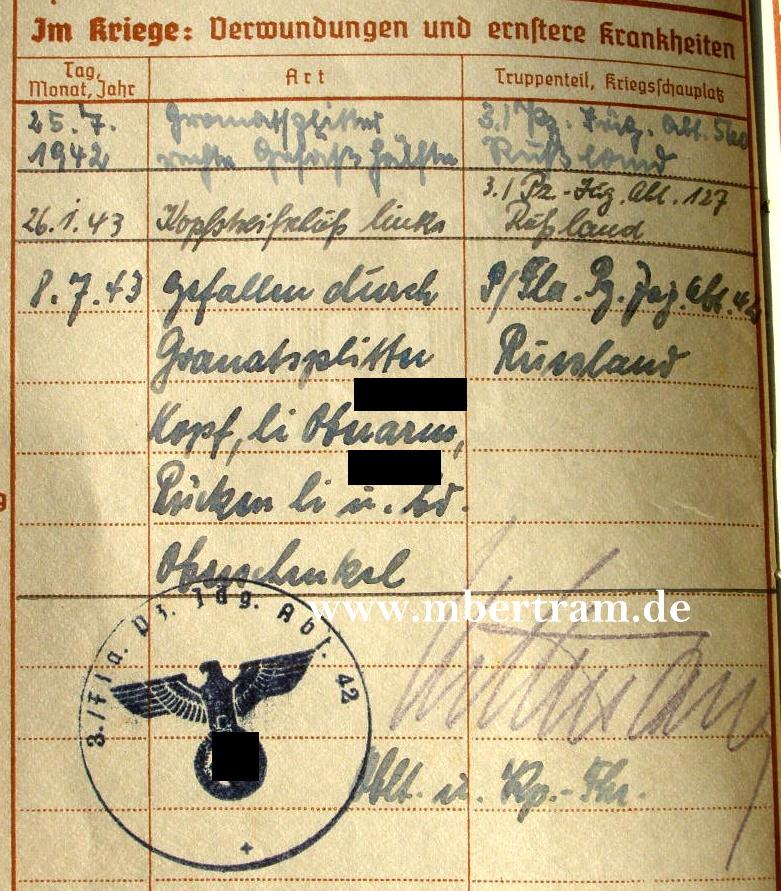 Im Kriege: Verwundungen und ernstere Krankheiten
Tag, Monat, Jahr Art Truppenteil, Kriegsschauplatz
25.7. Granatsplitter 3./Pz. Jäg. Abt. 560
1942 rechte Gesäßhälfte Rußland
3./Pz-Jäg. Abt. 127
26.1.43 Kopfstreifschuß links Rußland
8.7.43 Gefallen durch /Fla. Pz. Jäg. Abt. 42
Granatsplitter Russland
Kopf, li Oberarm,
Rücken li u. bd.
Oberschenkel
www.mbertram.de
3./Fla. Pz. Jäg. Abt. 42
Oblt. u. Kp.-Fhr.